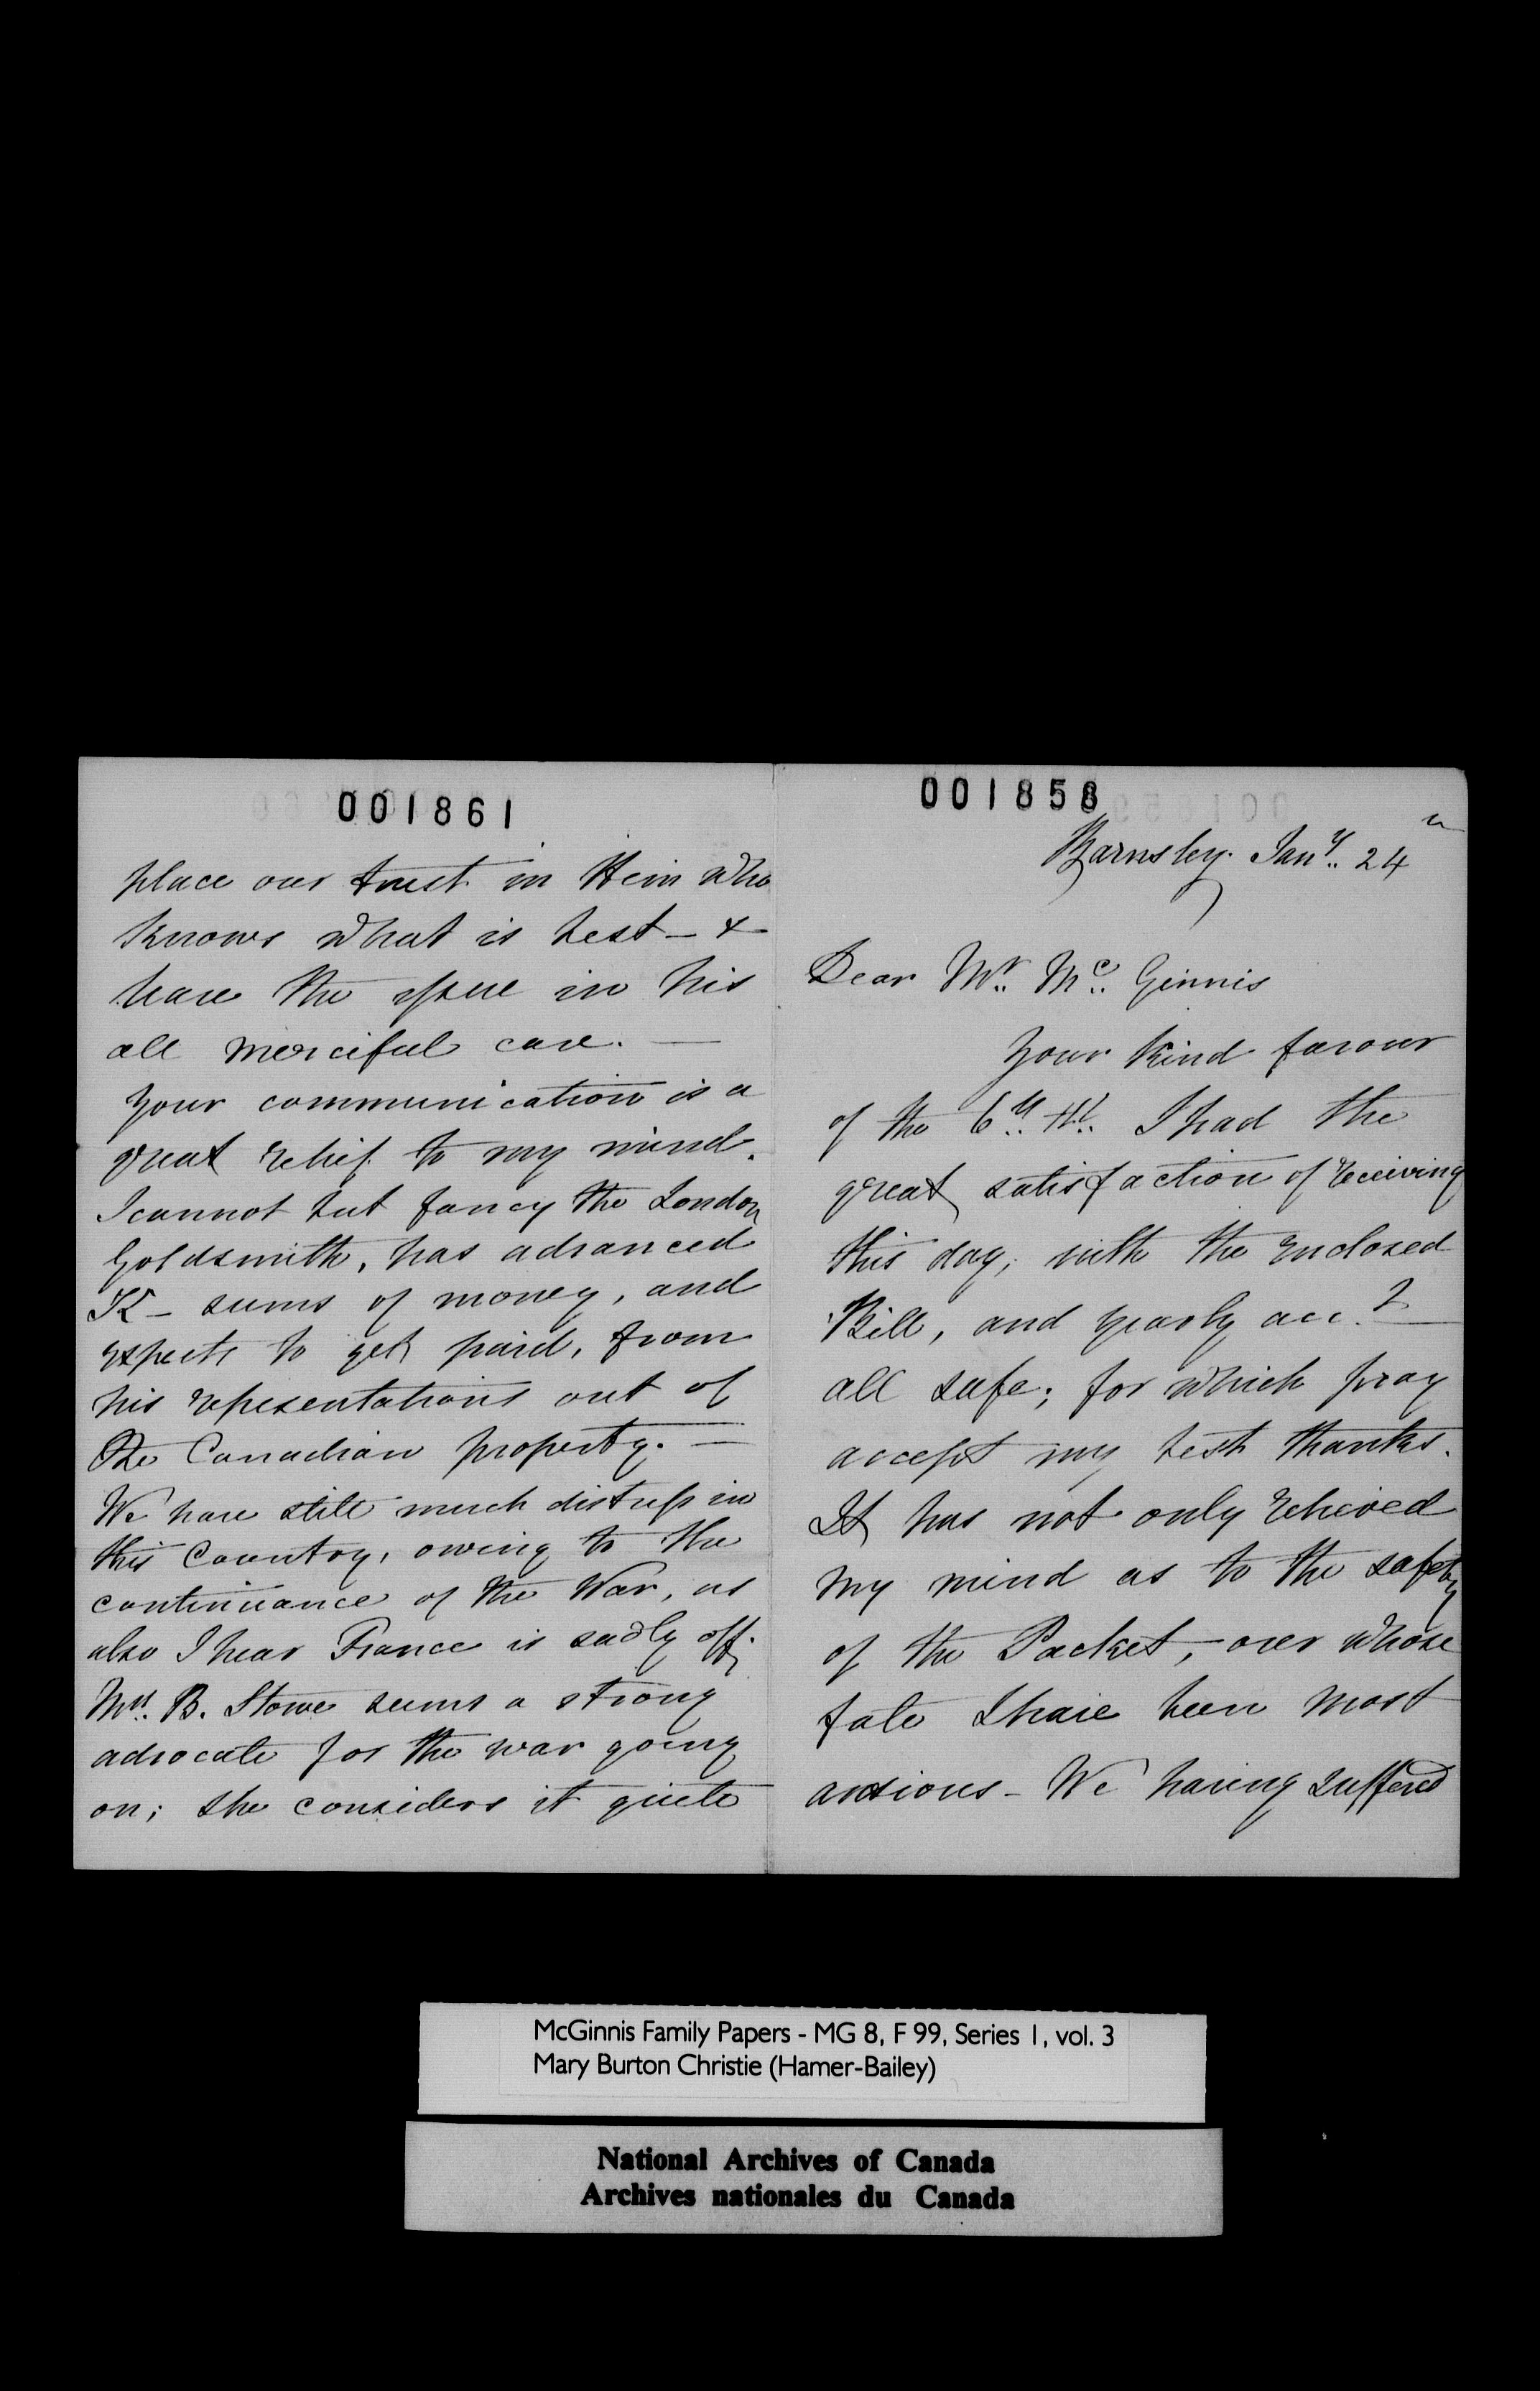 001861
place our trust in Him who
knows what is best - &
leave the issue in his
all merciful care. —
Your communication is a
great relief to my mind.
I cannot but fancy the London
Goldsmith, has advanced
K - sums of money, and
expects to get paid, from
his representations out of
the Canadian property. —
We have still much distress in
this Country, owing to the
continuance of the War, as
also I hear France is sadly off;
Mrs. B. Stowe seems a strong
advocate for the war going
on; she considers it quite
001858
Barnsley. Jany. 24
Dear Mr. Mc. Ginnis
Your kind favour
of the 6th I had the
great satisfaction of receiving
this day, with the enclosed
Bill, and yearly acc.t —
all safe; for which pray
accept my best thanks.
It has not only relieved
my mind as to the safety
of the Packet, - over whose
fate I have been most
anxious - We having suffered
McGinnis Family Papers - MG 8, F 99, Series 1, vol. 3
Mary Burton Christie (Hamer-Bailey)
National Archives of Canada
Archives nationales du Canada